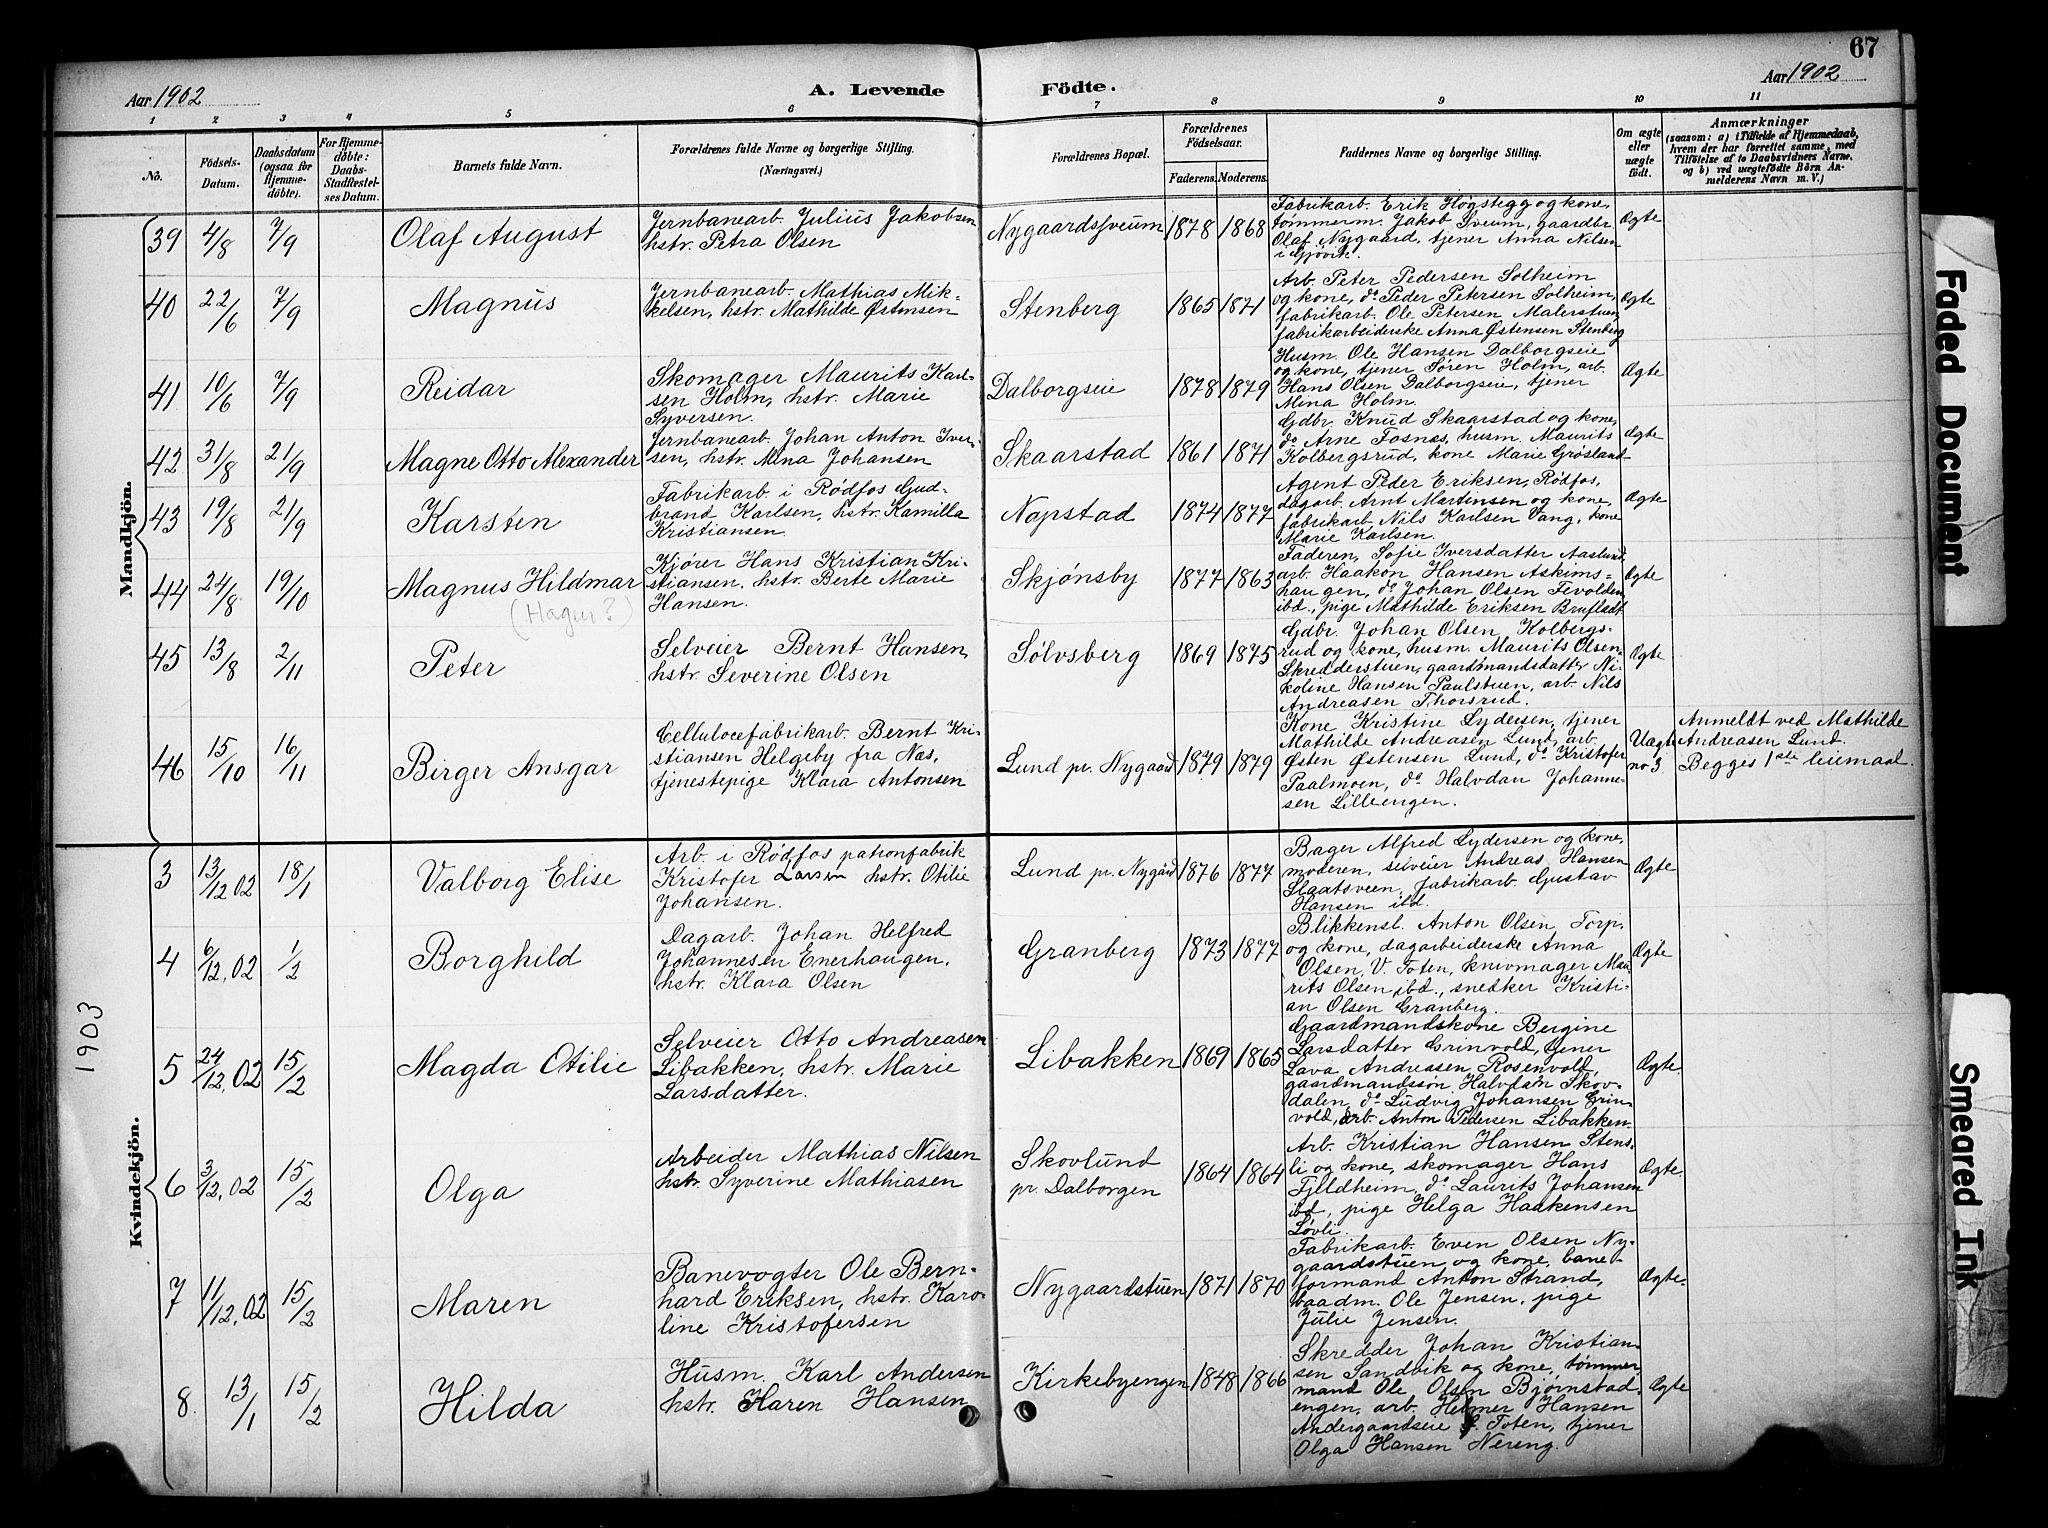 67
Aar 1902
A. Levende
Födte.
Aar 1902
1 2 3 4 5 6 7 8 9 10 11
No.
Födsels-
Datum.
Daabsdatum
(ogsaa för
Hjemme-
döbte).
For Hjemme-
döbte:
Daabs-
Stadfæstel-
ses Datum.
Barnets fulde Navn.
Forældrenes fulde Navne og borgerlige Stilling.
(Næringsvei.)
Forældrenes Bopæl.
Forældrenes
Födselsaar.
Faderens. Moderens.
Faddernes Navne og borgerlige Stilling.
Om ægte
eller
uægte
födt.
Anmærkninger
(saasom: a) i Tilfælde af Hjemmedaab,
hvem der har forrettet samme, med
Tilföielse af to Daabsvidners Navne,
og b) ved uægtefödte Börn An-
melderens Navn m. V.)
Mandkjön.
39 4/8 7/9 Olaf August
Jernbanearb. Julius Jakobsen
hstr. Petra Olsen
Nygaardssveum 1878 1868
Fabrikarb. Erik Høgstegg og kone,
tømmerm. Jakob Sveum, gaardbr.
Olaf Nygaard, tjener Anna Nilsen
i Gjøvik.
Ægte
40 22/6 7/9 Magnus
Jernbanearb. Mathias Mik-
kelsen, hstr. Mathilde Østensen
Stenberg 1865 1871
Arb. Peter Pedersen Solheim
og kone, do Peder Petersen Solheim,
fabrikarb. Ole Petersen Malerstuen,
fabrikarbeiderske Anna Østensen Stenberg
Ægte
41 10/6 7/9 Reidar
Skomager Maurits Karl-
sen Holm, hstr. Marie
Syversen.
Dalborgseie 1878 1879
Husm. Ole Hansen Dalborgseie
og kone, tjener Søren Holm, arb.
Hans Olsen Dalborgseie, tjener
Mina Holm.
Ægte
42 31/8 21/9 Magne Otto Alexander
Jernbanearb. Johan Anton Iver-
sen, hstr. Mina Johansen
Skaarstad 1861 1871
Gdbr. Knud Skaarstad og kone,
do Arne Fosnes, husm. Maurits
Kolbergsrud, kone Marie Grøsland
Ægte
43 19/8 21/9 Karsten
Fabrikarb. i Rødfos Gud-
brand Karlsen, hstr. Kamilla
Kristiansen.
Napstad 1874 1877
Agent Peder Eriksen, Rødfos,
dagarb. Arnt Martinsen og kone,
fabrikarb. Nils Karlsen Vang, kone
Marie Karlsen.
Ægte
44 24/8 19/10 Magnus Hildmar
(Hagur?)
Kjører Hans Kristian Kri-
stiansen, hstr. Berte Marie
Hansen.
Skjønsby 1877 1863
Faderen, Sofie Iversdatter Aaslund,
arb. Haakon Hansen Askims-
haugen, do Johan Olsen Fevolden
ibd., pige Mathilde Eriksen Brufladt
Ægte
45 13/8 2/11 Peter
Selveier Bernt Hansen,
hstr. Severine Olsen
Sølvsberg 1869 1875
Gdbr. Johan Olsen Kolbergs-
rud og kone, husm. Maurits Olsen
Skredderstuen, gaardmandsdatter Ni-
koline Hansen Paulstuen, arb. Nils
Andreasen Thorsrud.
Ægte
46 15/10 16/11 Birger Ansgar
Cellulocefabrikarb. Bernt Kri-
stiansen Helgeby fra Næs,
tjenestepige Klara Antonsen
Lund pr. Nygaard 1879 1879
Kone Kristine Lydersen, tjener
Mathilde Andreasen Lund, arb.
Østen Østensen Lund, do Kristofer
Paalmoen, do Halvdan Johanne-
sen Lilleengen.
Uægte
no 3
Anmeldt ved Mathilde
Andreasen Lund.
Begges 1ste leiemaal.
1903
Kvindekjön.
3 13/12 02 18/1 Valborg Elise
Arb. i Rødfos patronfabrik
Kristofer Larsen hstr. Otilie
Johansen.
Lund pr. Nygård 1876 1877
Bager Alfred Lydersen og kone,
moderen, selveier Andreas Hansen
Slaatsveen, fabrikarb. Gustav
Hansen ibd.
Ægte
4 6/12, 02 1/2 Borghild
Dagarb. Johan Helfred
Johannesen Enerhaugen,
hstr. Klara Olsen
Granberg 1873 1877
Blikkensl. Anton Olsen Torp,
og kone, dagarbeiderske Anna
Olsen, V. Toten, knivmager Mau-
rits Olsen, ibd., snedker Kristi-
an Olsen Granberg.
Ægte
5 24/12, 02 15/2 Magda Otilie
Selveier Otto Andreasen
Libakken, hstr. Marie
Larsdatter.
Libakken 1869 1865
Gaardmandskone Bergine
Larsdatter Grinvold, tjener
Lava Andreasen Rosenvold,
gaardmandssøn Halvdan Skov-
dalen, do Ludvig Johansen Grin-
vold, arb. Anton Pedersen Libakken
Ægte.
6 3/12, 02 15/2 Olga
Arbeider Mathias Nilsen
hstr. Syverine Mathiasen
Skovlund
pr. Dalborgen 1864 1864
Arb. Kristian Hansen Stens-
li og kone, skomager Hans
Fjeldheim, do Laurits Johansen
ibd, pige Helga Haakensen
Løvli.
Ægte.
7 11/12, 02 15/2 Maren
Banevogter Ole Bern-
hard Eriksen, hstr. Karo-
line Kristofersen
Nygaardstuen 1871 1870
Fabrikarb. Even Olsen Ny-
gaardstuen og kone, bane-
formand Anton Strand,
baadm. Ole Jensen, pige
Julie Jensen.
Ægte.
8 13/1 15/2 Hilda
Husm. Karl Andersen
hstr. Karen Hansen
Kirkebyengen 1848 1866
Skredder Johan Kristian-
sen Sandvik og kone, tømmer-
mand Ole Olsen Bjørnstad
engen, arb. Helmer Hansen
Andergaardseie Toten, tjener
Olga Hansen Nereng.
Ægte
Faded Document
Smeared Ink